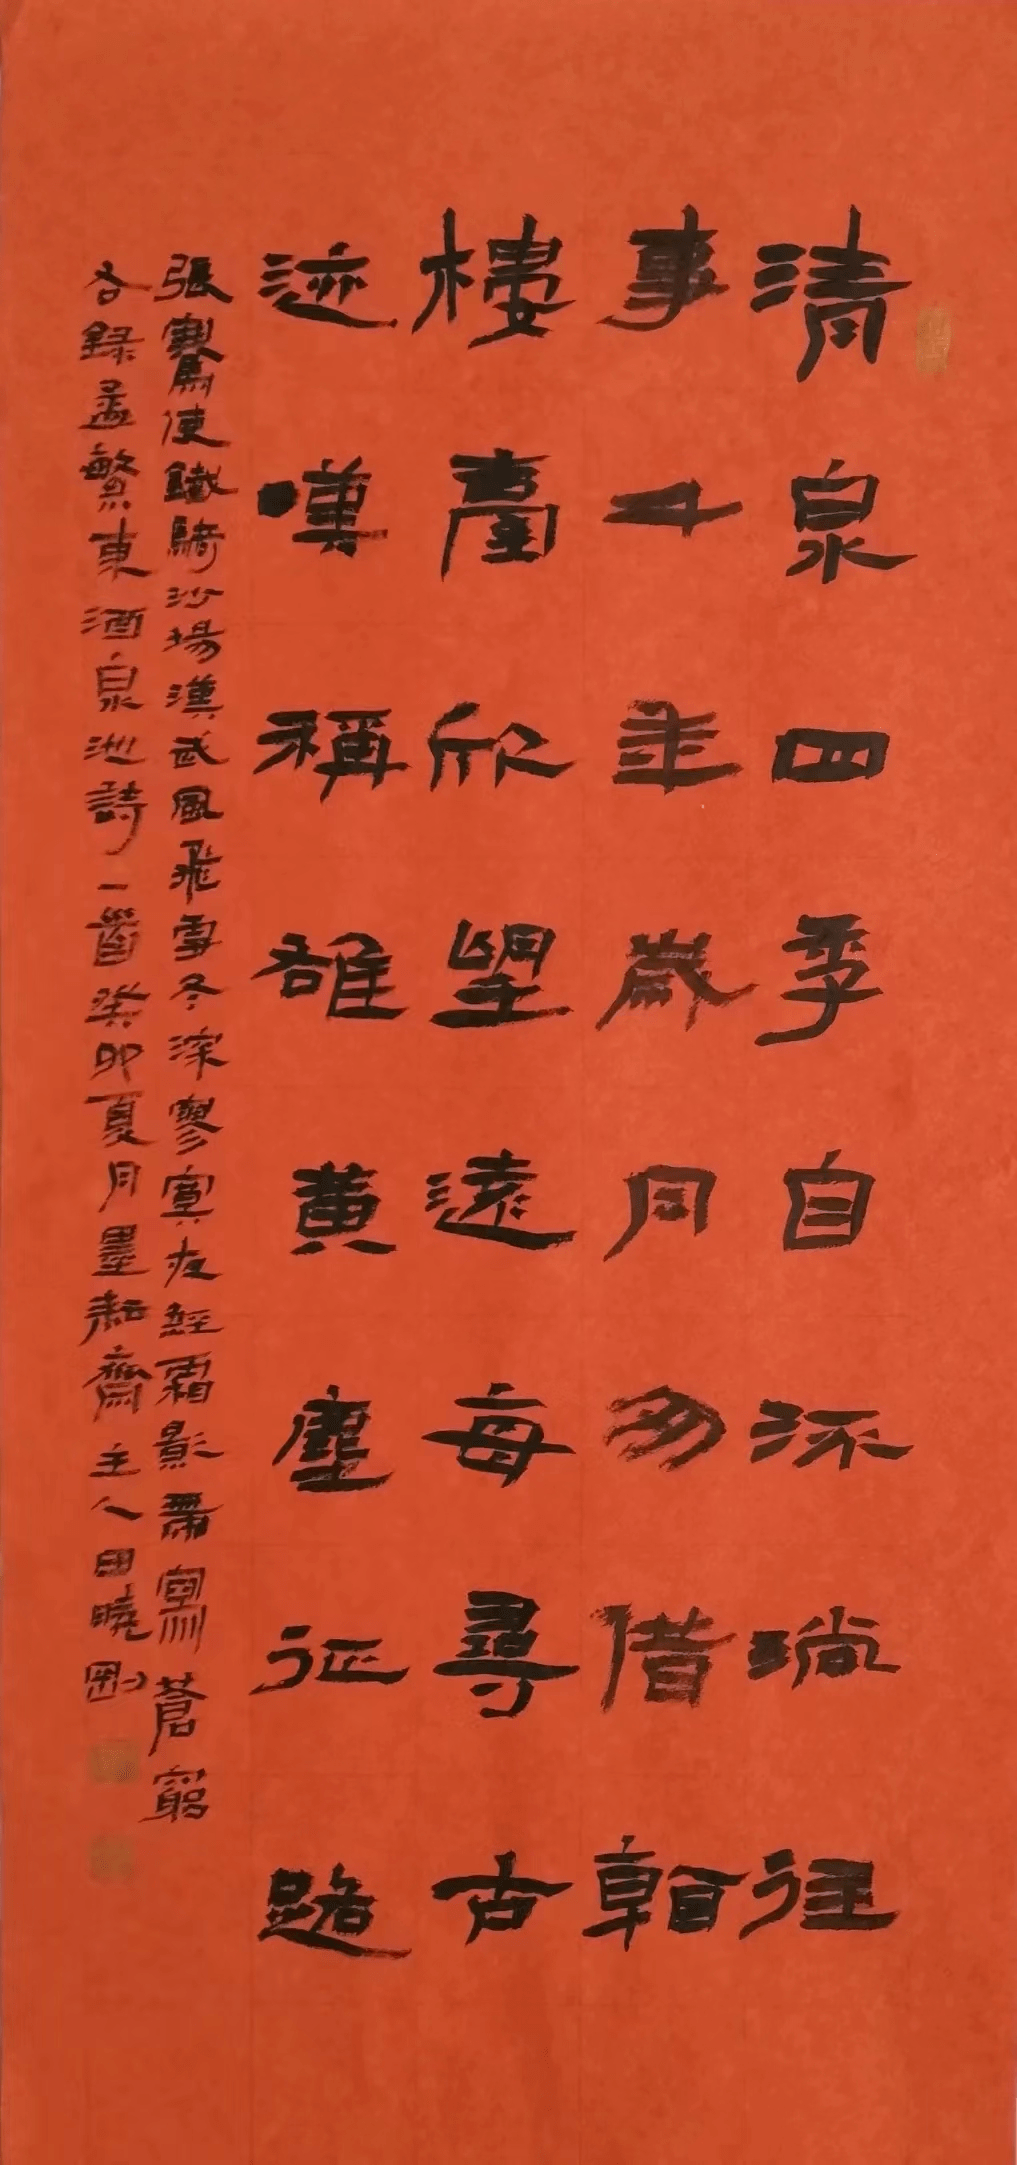 清泉四季自流淌往
事千年歲月匆借
樓臺欣望遠每尋古
迹嘆稱雄黃塵征路
張騫使鐵騎沙場漢武風飛雪冬深寥寞夜經霜影肅寫蒼穹
右錄孟繁東酒泉池詩一首癸卯夏月墨耘齋主人田曉剛